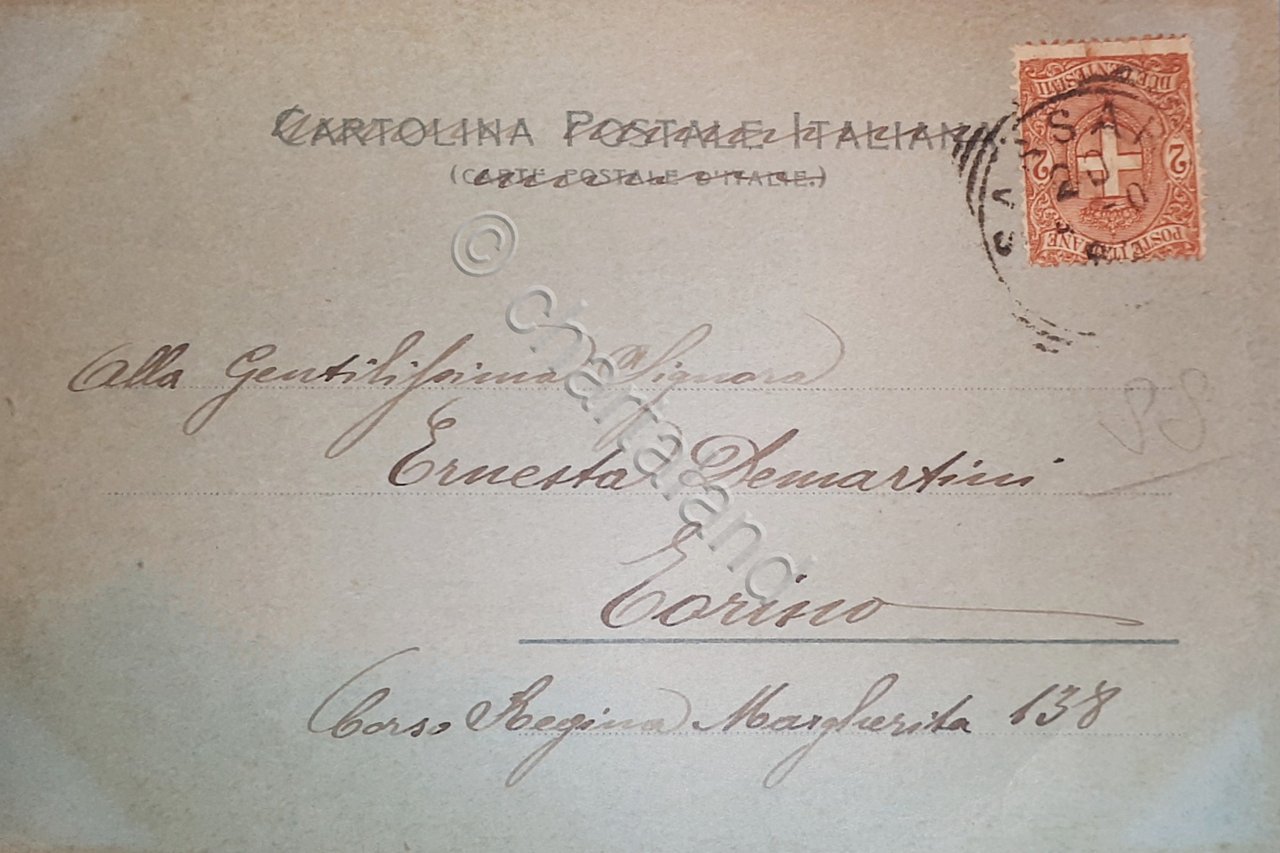 CARTOLINA POSTALE ITALIANA
(CARTE POSTALE D'ITALIE.)
DUE CENTESIMI
2 2
POSTE ITALIANE
© chartaland
Alla Gentilissima Signora
Ernesta Demartini
Torino
Corso Regina Margherita 138